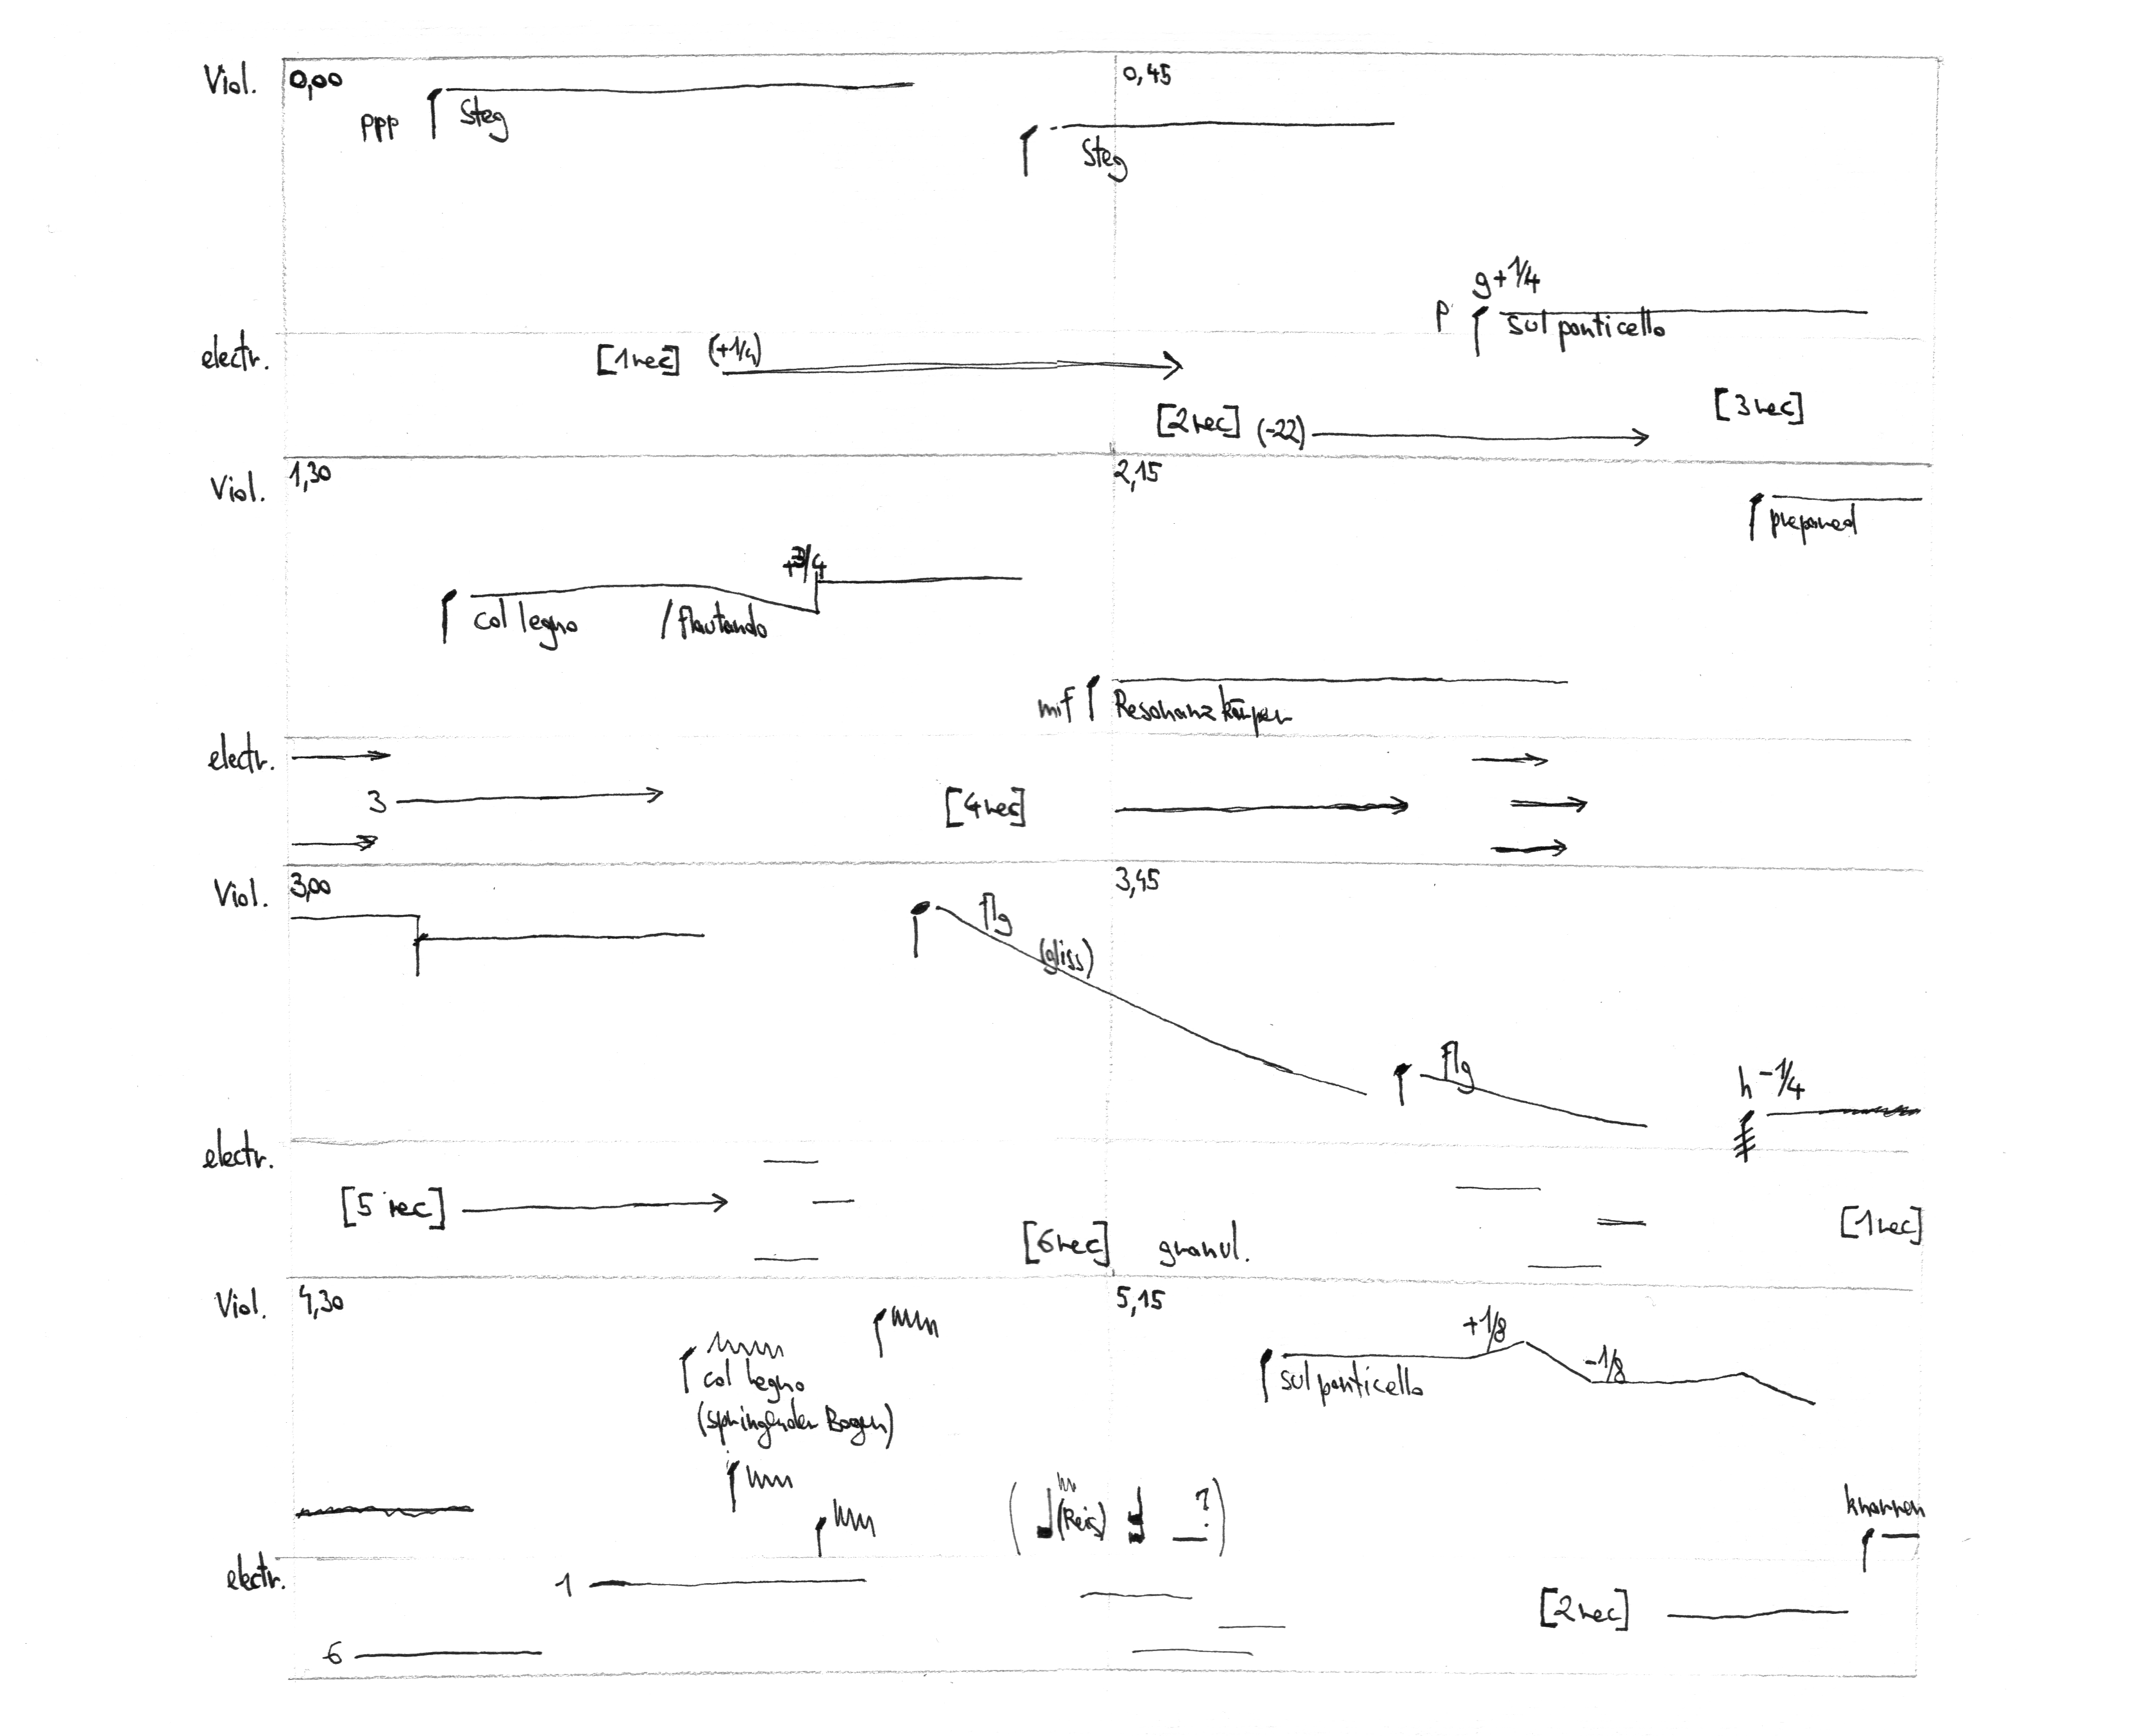 Viol. 0,00 0,45
ppp Steg
Steg
g+1/4
p sul ponticello
electr. [1rec] (+1/4)
[2rec] (-22) [3rec]
Viol. 1,30 2,15
prepared
+3/4
col legno /flautando
mf Resonanzkörper
electr.
3 [4rec]
Viol. 3,00 3,45
flg
(gliss)
flg
h -1/4
electr.
[5 rec]
[6rec] granul. [1rec]
Viol. 4,30 5,15
+1/8
col legno sul ponticello -1/8
(springender Bogen)
( (Reis) ?)
knarren
electr. 1
[2rec]
6